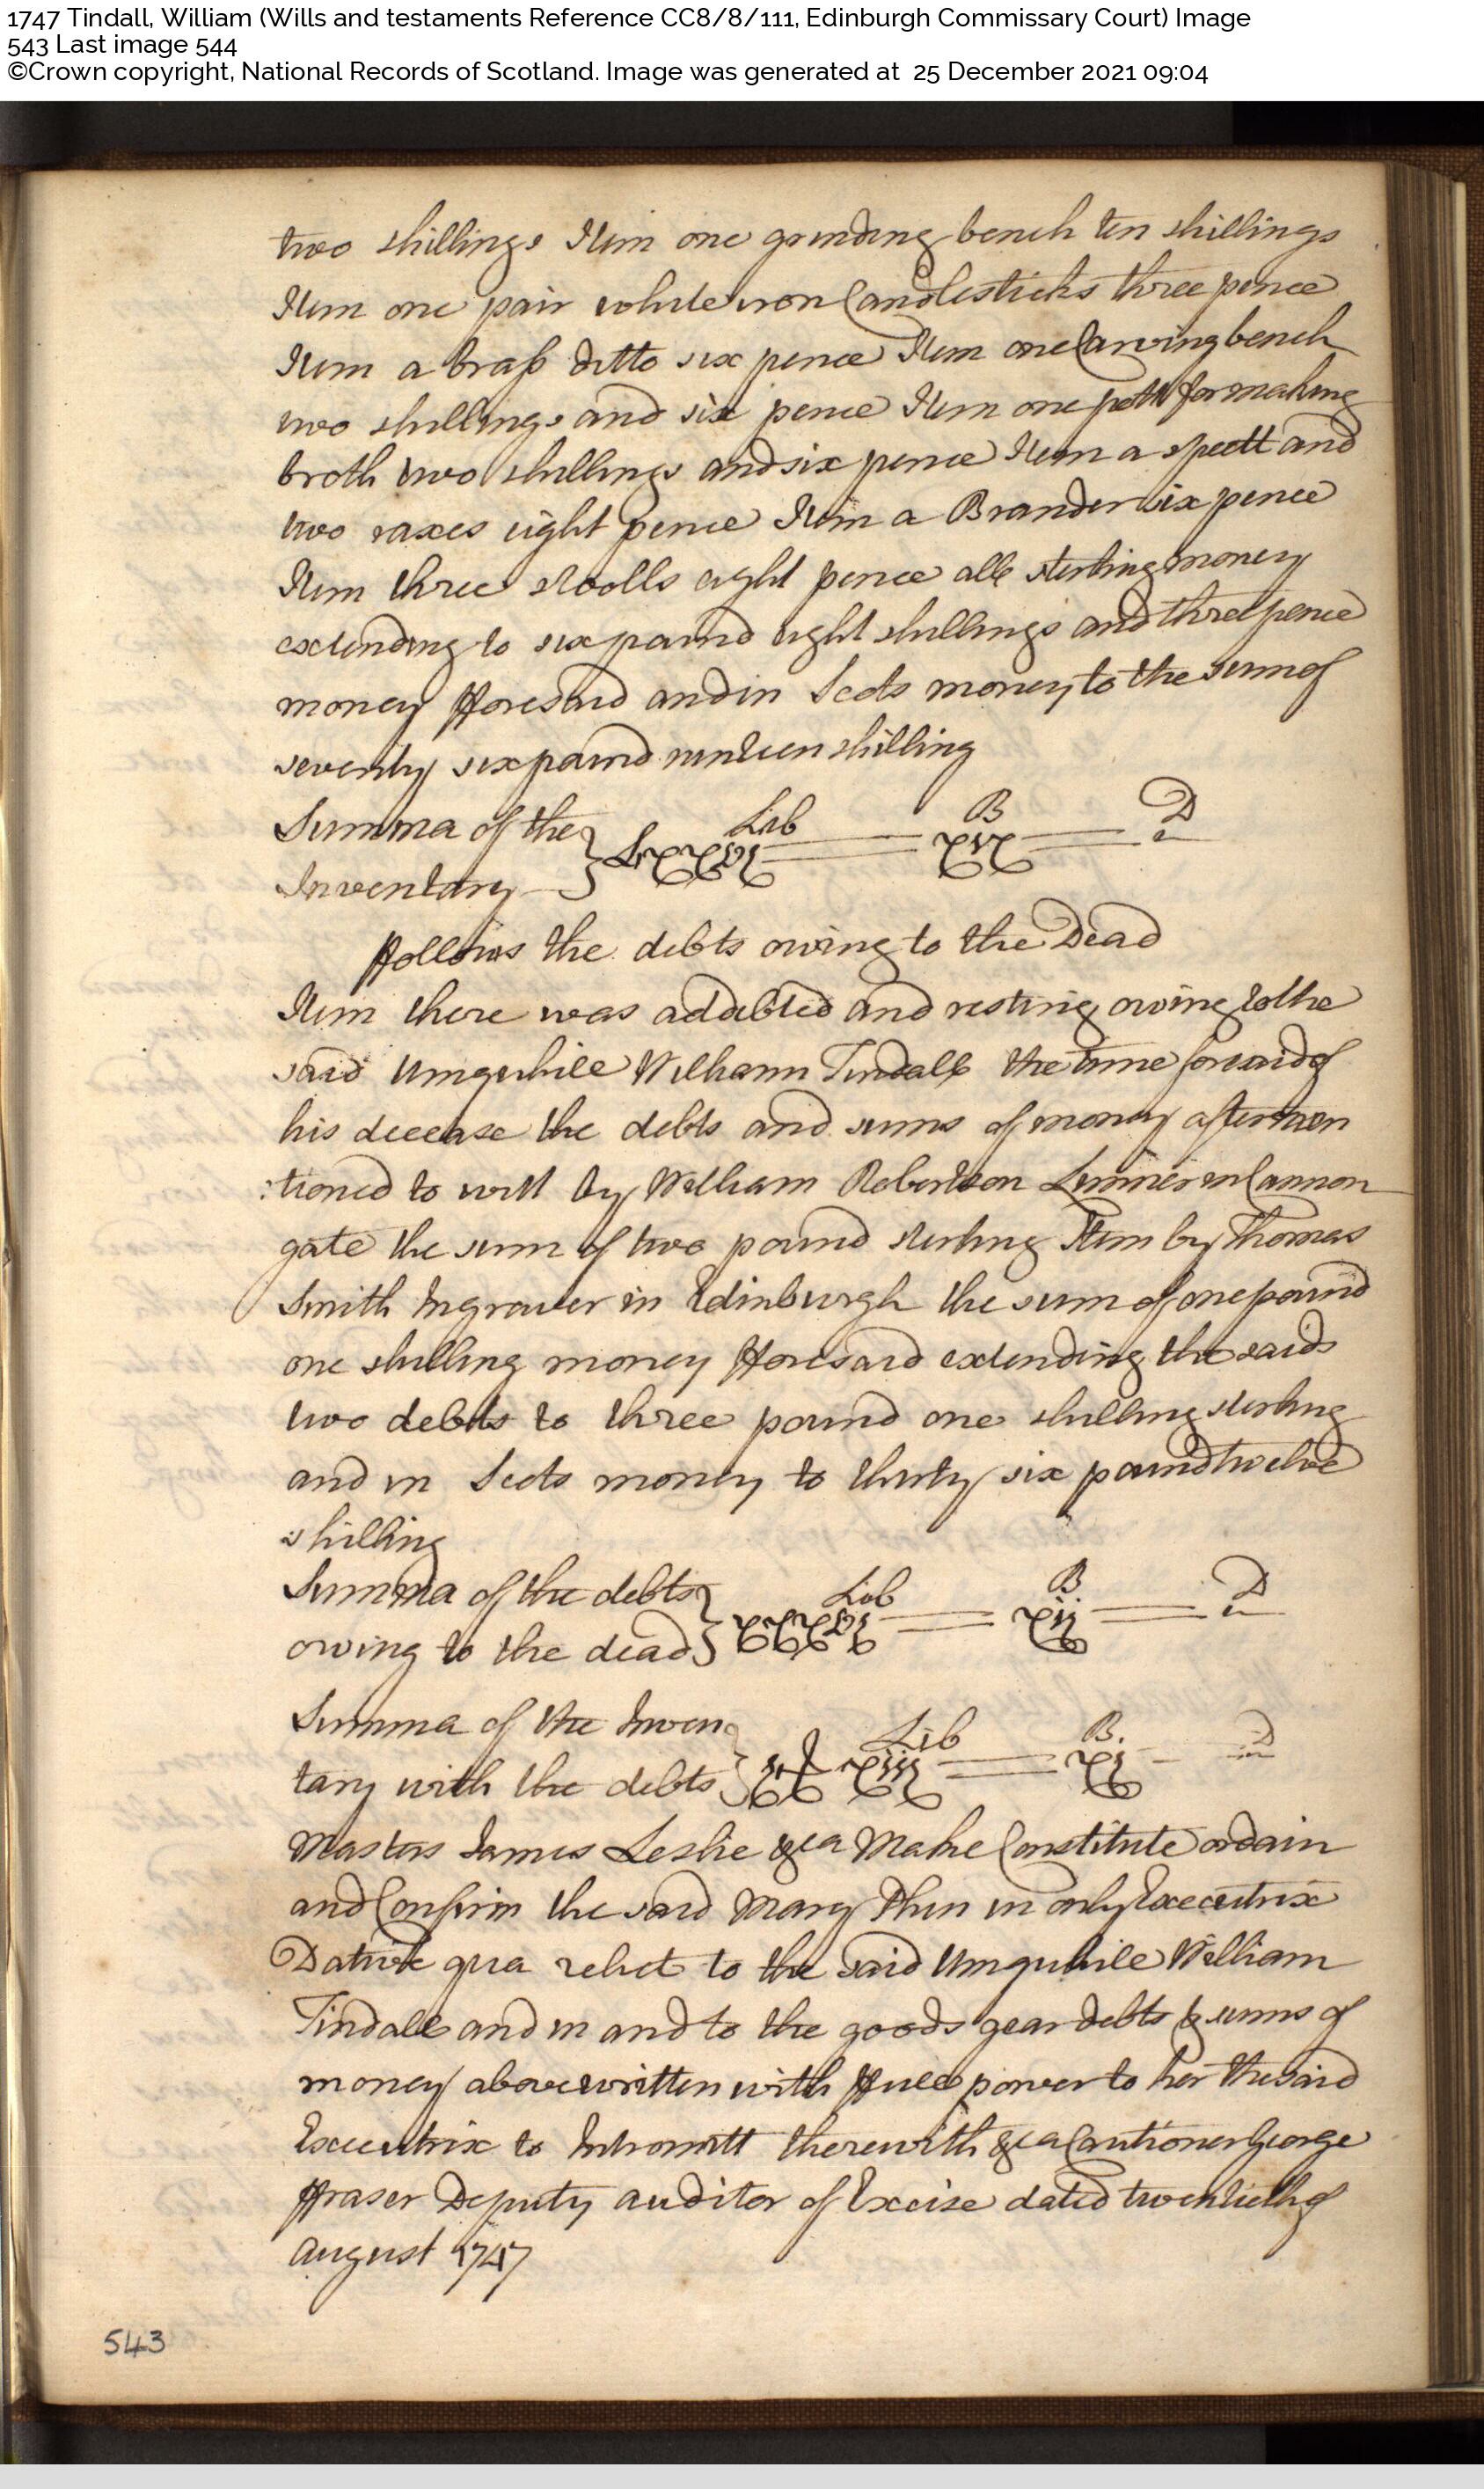 1747 Tindall, William (Wills and testaments Reference CC8/8/111, Edinburgh Commissary Court) Image
543 Last image 544
©Crown copyright, National Records of Scotland. Image was generated at 25 December 2021 09:04
two shillings Item one grinding bench ten shillings
Item one pair white iron Candlesticks three pence
Item a brass ditto six pence Item one Carving bench
two shillings and six pence Item one pott for making
broth two shillings and six pence Item a speett and
two raxes eight pence Item a Brander six pence
Item three stoolls eight pence all sterling money
extending to six pound eight shillings and three pence
money fforesaid and in Scots money to the sum of
seventy six pound ninteen shilling
Lib B D
Summa of the
Inventary
ffollows the debts owing to the Dead
Item there was addebted and resting owing to the
said Umquhile William Tindall the time foresaid of
his decease the debts and sums of money aftermen
:tioned to witt by William Robertson Limner in Cannon
gate the sum of two pound sterling Item by Thomas
Smith Ingraver in Edinburgh the sum of one pound
one shilling money fforesaid extending the saids
two debts to three pound one shilling sterling
and in Scots money to thirty six pound twelve
shilling
Summa of the debts Lib B D
owing to the dead xxxvi xij
Summa of the Inven Lib B. D
tary with the debts
Masters James Leslie &ca Make Constitute ordain
and Confirm the said Mary Thin in only Executrix
Dative qua relict to the said Umquhile William
Tindall and in and to the goods gear debts & sums of
money abovewritten with ffull power to her the said
Executrix to Intromitt therewith &ca Cautioner George
ffraser Deputy auditor of Excise dated twentieth of
August 1747
543